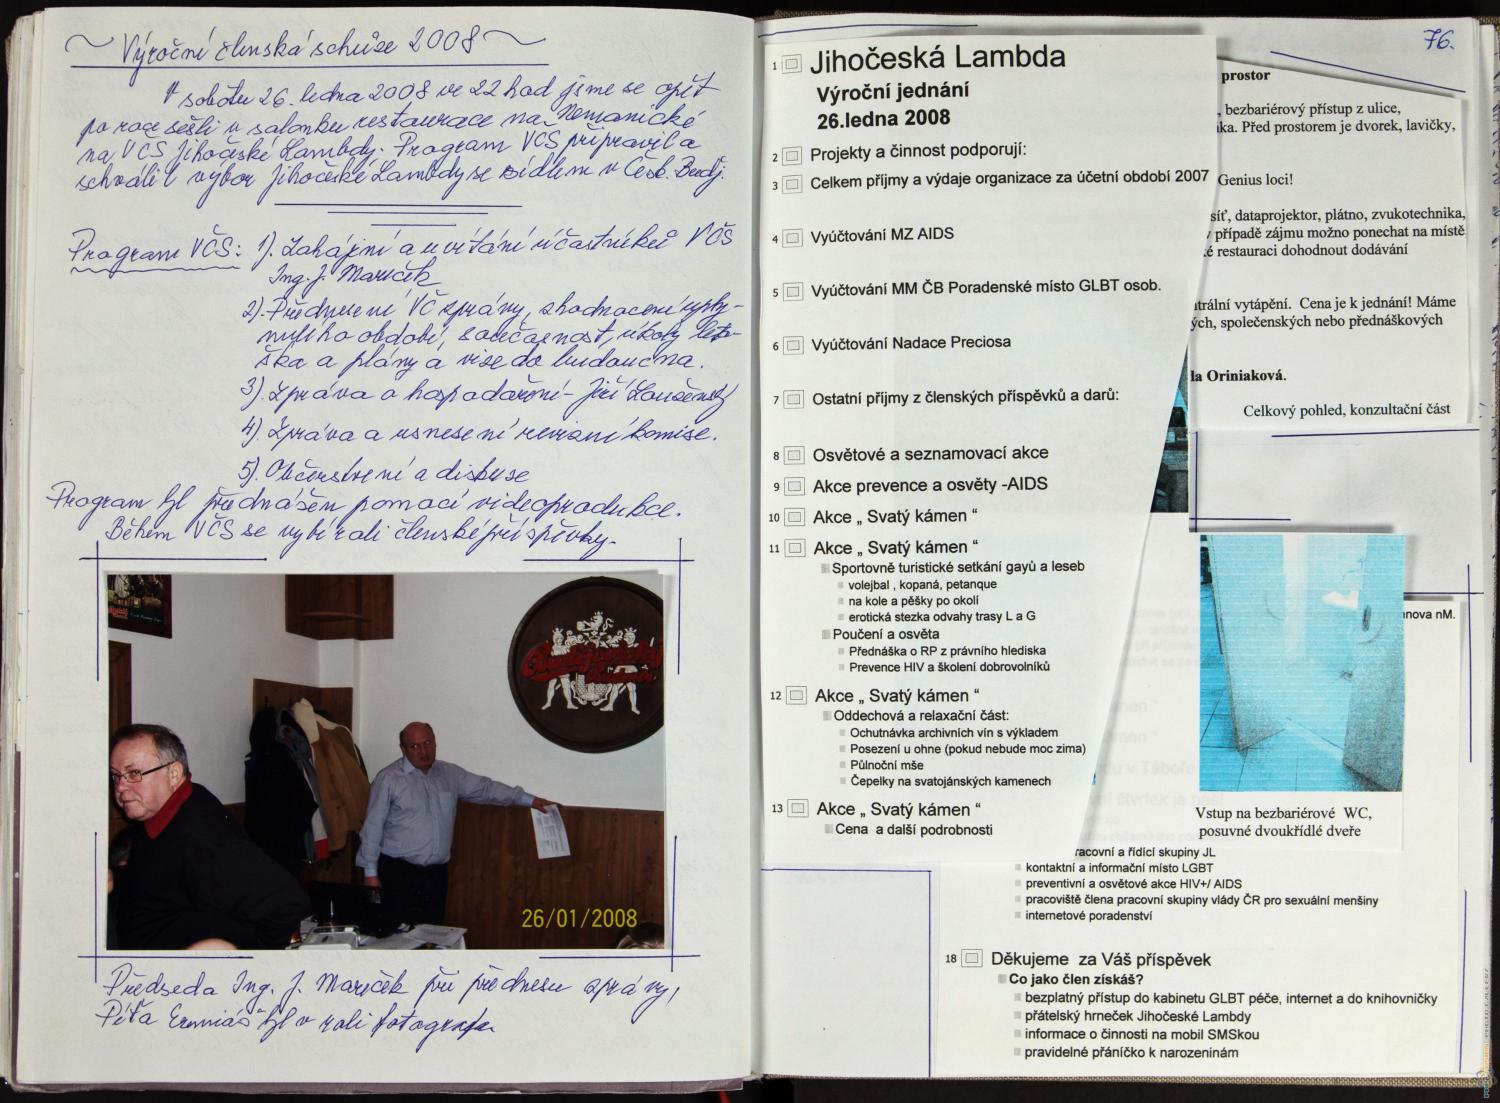 Výroční členská schůze 2008
V sobotu 26. ledna 2008 ve 22 hod jsme se opět
po roce sešli v salonku restaurace na Nemanické
na VČS Jihočeské Lambdy. Program VČS připravil a
schválil výbor Jihočeské Lambdy se sídlem v Česk. Buděj.
Program VČS: 1). Zahájení a uvítání účastníků VČS
Ing. J. Mareček
2). Přednesení VČ zprávy, zhodnocení uply-
nulého období, současnost, úkoly leto-
ška a plány a vize do budoucna.
3). Zpráva o hospodaření - Jiří
4). Zpráva a usnesení revizní komise.
5). Občerstvení a diskuse
Program byl přednášen pomocí videoprodukce.
Během VČS se vybírali členské příspěvky.
26/01/2008
Předseda Ing. J. Mareček při přednesu zprávy,
Péťa byl v roli fotografa
76.
1 Jihočeská Lambda
Výroční jednání
26.ledna 2008
2 Projekty a činnost podporují:
3 Celkem příjmy a výdaje organizace za účetní období 2007
4 Vyúčtování MZ AIDS
5 Vyúčtování MM ČB Poradenské místo GLBT osob.
6 Vyúčtování Nadace Preciosa
7 Ostatní příjmy z členských příspěvků a darů:
8 Osvětové a seznamovací akce
9 Akce prevence a osvěty -AIDS
10 Akce „ Svatý kámen “
11 Akce „ Svatý kámen “
Sportovně turistické setkání gayů a leseb
volejbal , kopaná, petanque
na kole a pěšky po okolí
erotická stezka odvahy trasy L a G
Poučení a osvěta
Přednáška o RP z právního hlediska
Prevence HIV a školení dobrovolníků
12 Akce „ Svatý kámen “
Oddechová a relaxační část:
Ochutnávka archivních vín s výkladem
Posezení u ohne (pokud nebude moc zima)
Půlnoční mše
Čepelky na svatojánských kamenech
13 Akce „ Svatý kámen “
Cena a další podrobnosti
prostor
, bezbariérový přístup z ulice,
ka. Před prostorem je dvorek, lavičky,
Genius loci!
síť, dataprojektor, plátno, zvukotechnika,
případě zájmu možno ponechat na místě
restauraci dohodnout dodávání
trální vytápění. Cena je k jednání! Máme
ých, společenských nebo přednáškových
la Oriniaková.
Celkový pohled, konzultační část
nova nM.
Vstup na bezbariérové WC,
posuvné dvoukřídlé dveře
racovní a řídící skupiny JL
kontaktní a informační místo LGBT
preventivní a osvětové akce HIV+/ AIDS
pracoviště člena pracovní skupiny vlády ČR pro sexuální menšiny
internetové poradenství
18 Děkujeme za Váš příspěvek
Co jako člen získáš?
bezplatný přístup do kabinetu GLBT péče, internet a do knihovničky
přátelský hrneček Jihočeské Lambdy
informace o činnosti na mobil SMSkou
pravidelné přáníčko k narozeninám